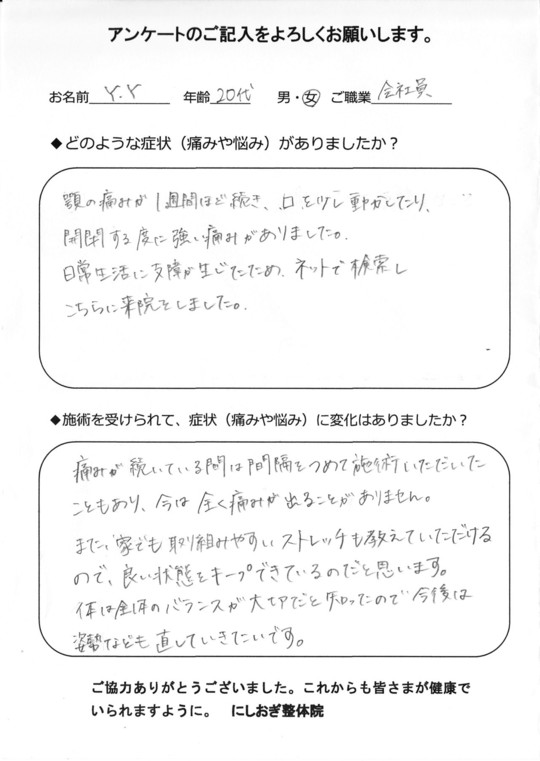 アンケートのご記入をよろしくお願いします。
お名前 Y.Y 年齢 20代 男・女 ご職業 会社員
◆どのような症状（痛みや悩み）がありましたか？
顎の痛みが1週間ほど続き、口を少し動かしたり、
開閉する度に強い痛みがありました。
日常生活に支障が生じたため、ネットで検索し
こちらに来院をしました。
◆施術を受けられて、症状（痛みや悩み）に変化はありましたか？
痛みが続いている間は間隔をつめて施術いただいた
こともあり、今は全く痛みが出ることがありません。
また、家でも取り組みやすいストレッチも教えていただける
ので、良い状態をキープできているのだと思います。
体は全体のバランスが大切だと知ったので今後は
姿勢なども直していきたいです。
ご協力ありがとうございました。これからも皆さまが健康で
いられますように。 にしおぎ整体院